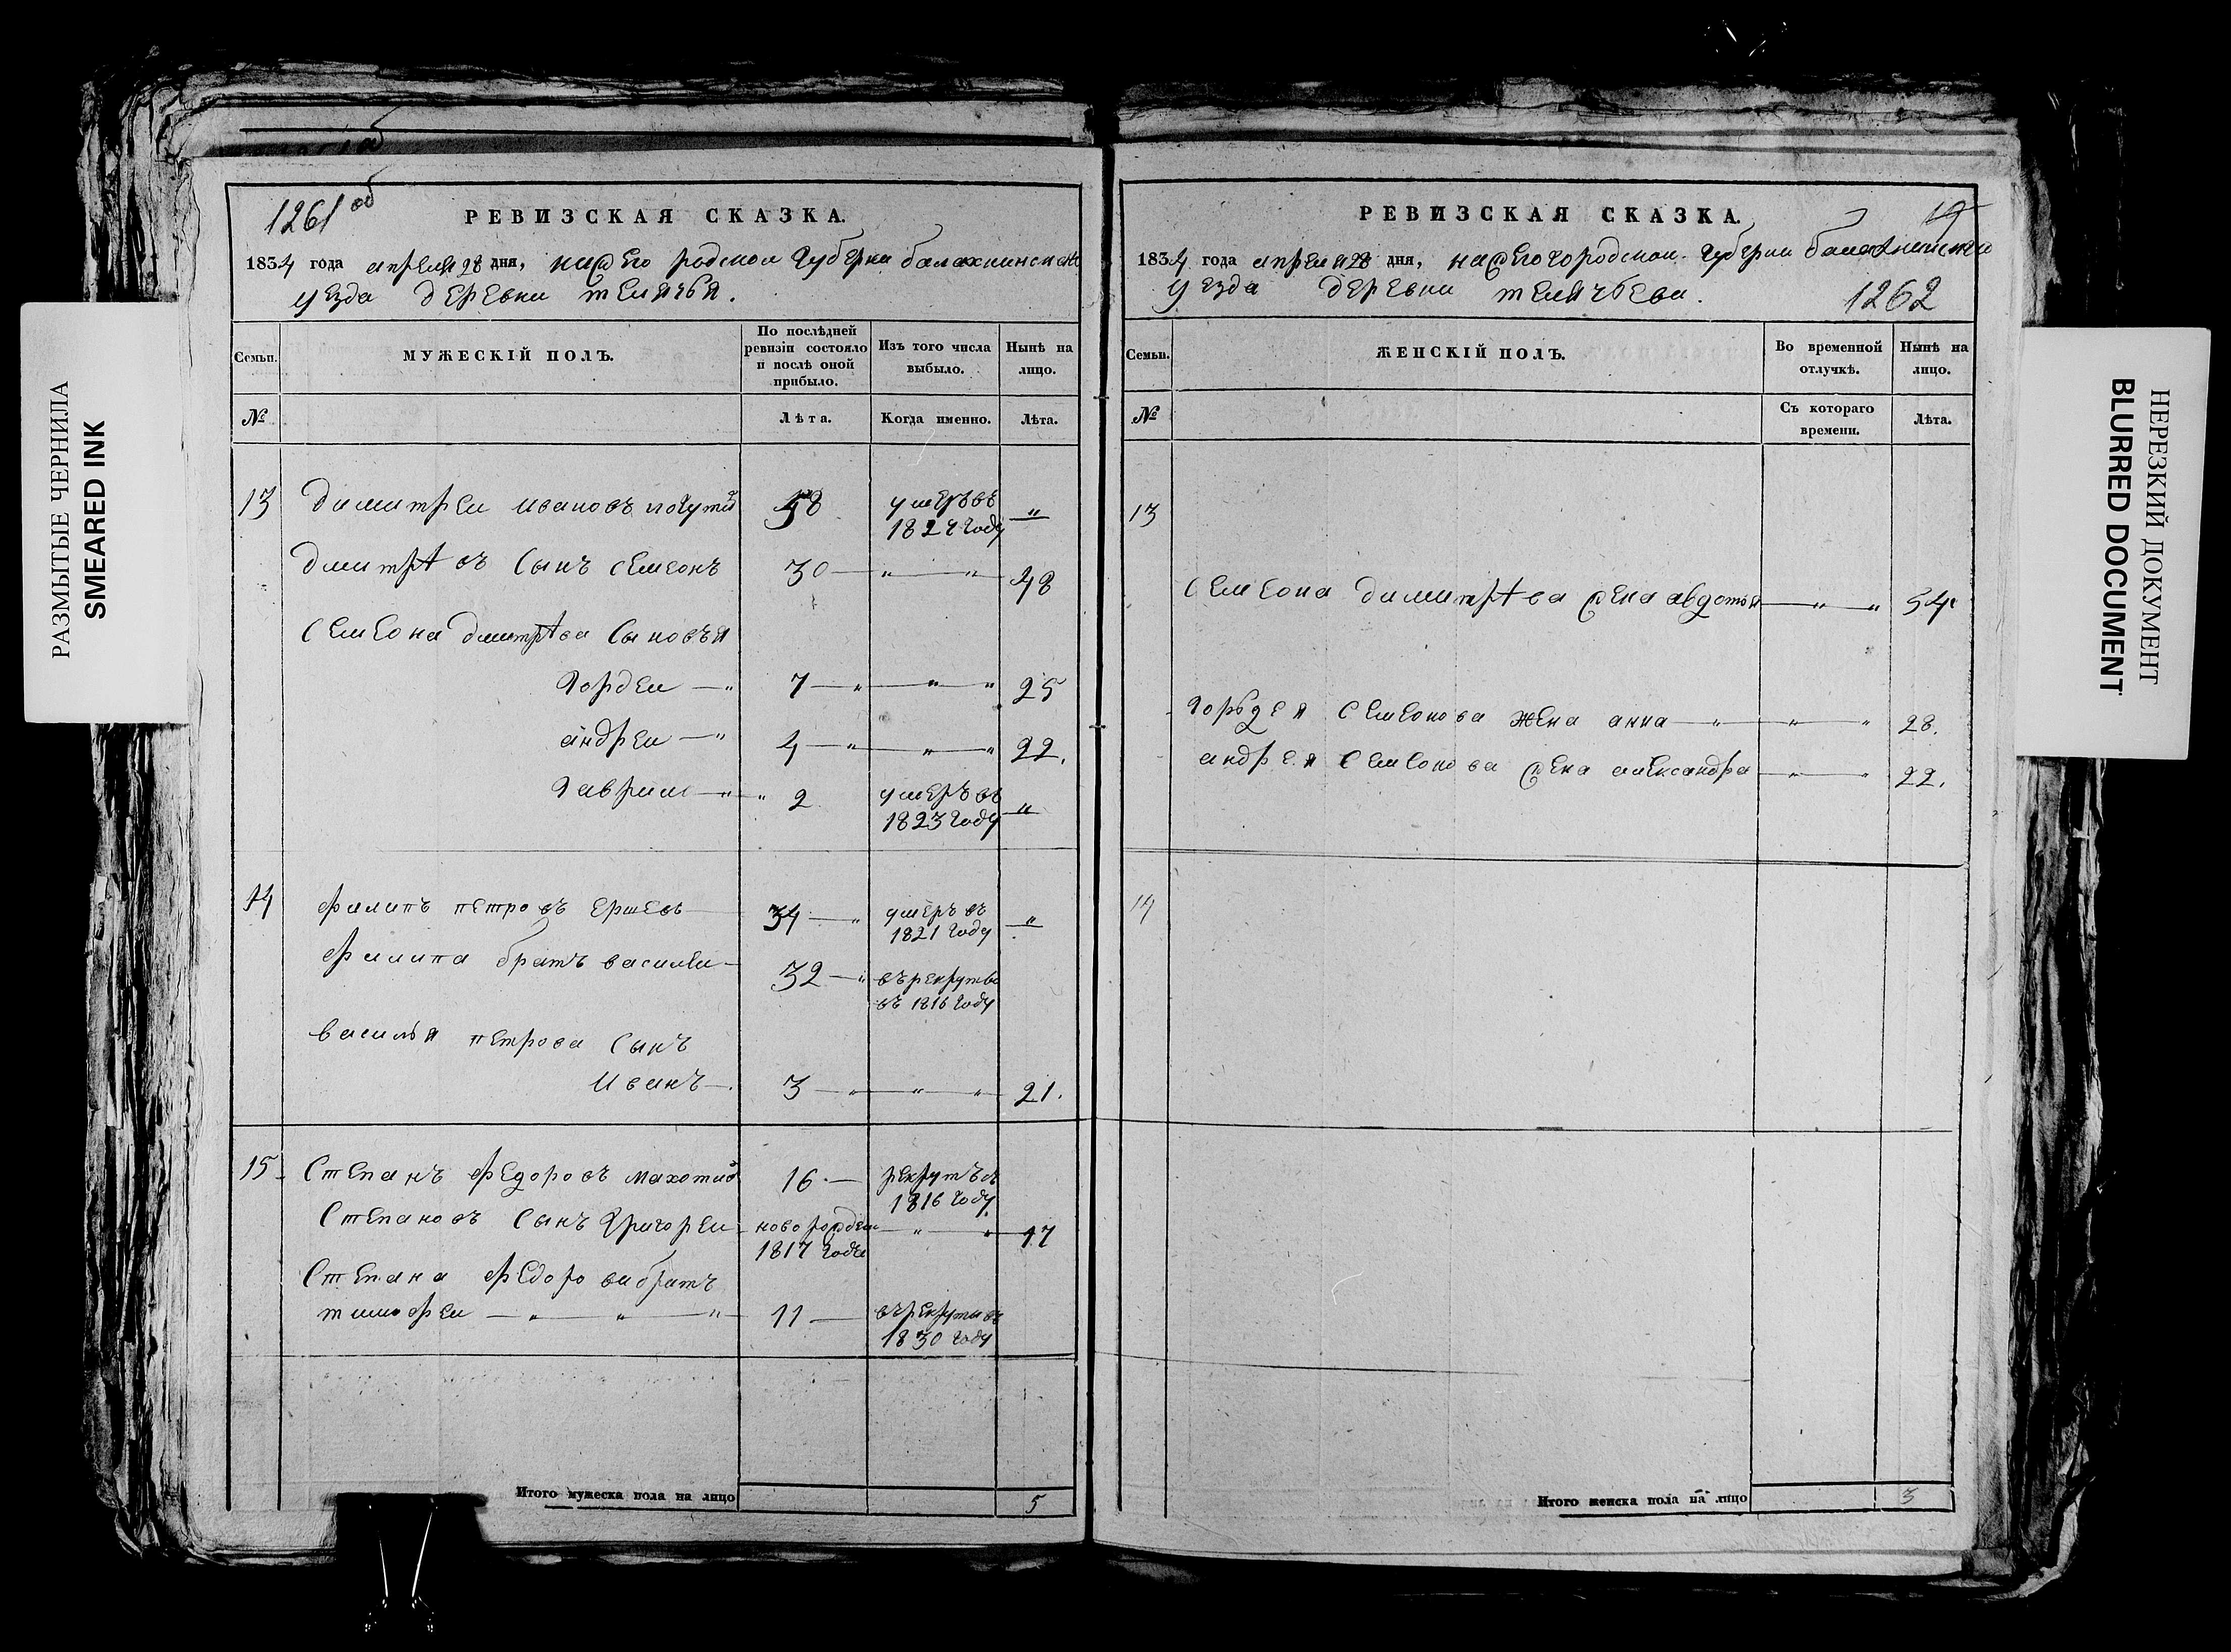 РАЗМЫТЫЕ ЧЕРНИЛА
SMEARED INK
1261 об
РЕВИЗСКАЯ СКАЗКА.
1834 года апреля 28 дня, нижего родской губерни балахнинской
уезда деревни телячья.
Семьи.
МУЖЕСКІЙ ПОЛЪ.
По послѣдней ревизіи состояло и послѣ оной прибыло.
Изъ того числа выбыло.
Нынѣ на лицо.
№
Лѣта.
Когда именно.
Лѣта.
13 димитреи ивановъ 58 умеръ въ "
1824 году
дмитрѣвъ сынъ семеонъ 30 " " 48
семеона дмитрѣва сыновья
гордеи " 7 " " " 25
андреи " 4 " " " 22.
гаврила " " 2 умеръ въ "
1823 году
14 филипъ петровъ ершевъ 34 " умеръ въ "
1821 году
филипа братъ василеи 32 " въ рекруты
въ 1816 году
василья петрова сынъ
иванъ 3 " " " 21.
15 степанъ федоровъ 16 рекрутъ въ
1816 году
степановъ сынъ григореи новорожден " " 17
1817 года
степана федорова братъ
тимофеи " " " 11 въ рекруты въ
1830 году
Итого мужеска пола на лицо 5
РЕВИЗСКАЯ СКАЗКА. 19
1834 года апреля 28 дня, нижегогородской губерни балахнинской
уезда деревни телячьева. 1262
Семьи.
ЖЕНСКІЙ ПОЛЪ.
Во временной отлучкѣ.
Нынѣ на лицо.
№
Съ котораго времени.
Лѣта.
13
семеона димитрѣва жена авдотья " " 54
горьдея семеонова жена анна " " " 28.
андрея семеонова жена александра " " 22.
14
Итого женска пола на лицо 3
НЕРЕЗКИЙ ДОКУМЕНТ
BLURRED DOCUMENT